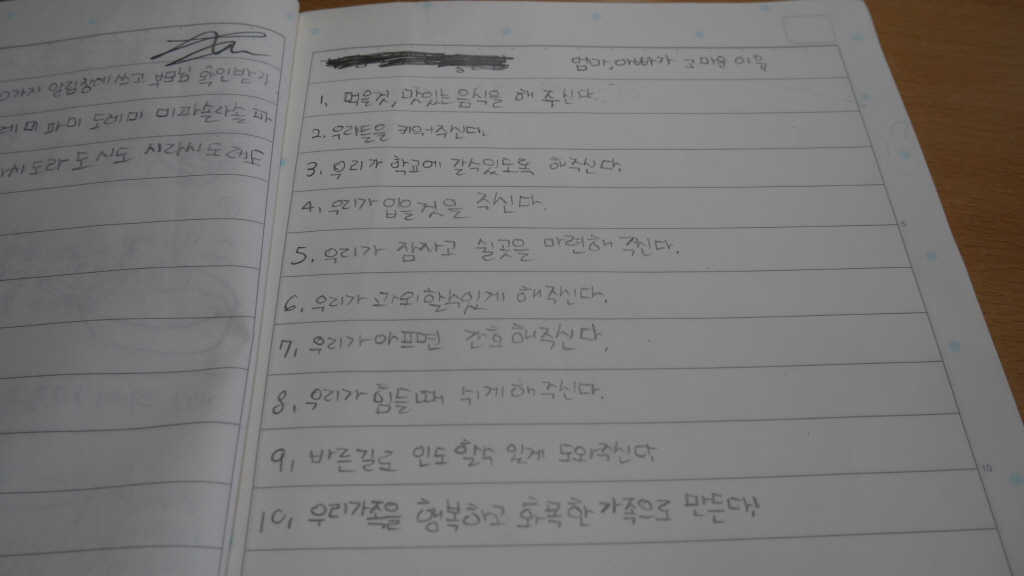 10가지 알림장에 쓰고 부모님 확인받기
레미 파미 도레미 미파솔라솔 파
시도라도 시도 시라시도레도
엄마, 아빠가 고마운 이유
1. 먹을것, 맛있는 음식을 해 주신다.
2. 우리들을 키워주신다.
3. 우리가 학교에 갈수있도록 해주신다.
4. 우리가 입을것을 주신다.
5. 우리가 잠자고 쉴곳을 마련해 주신다.
6. 우리가 과외할수있게 해주신다.
7. 우리가 아프면 간호해주신다.
8. 우리가 힘들때 쉬게해주신다.
9. 바른길로 인도할수 있게 도와주신다
10. 우리가족을 행복하고 화목한 가족으로 만든다.
5
10